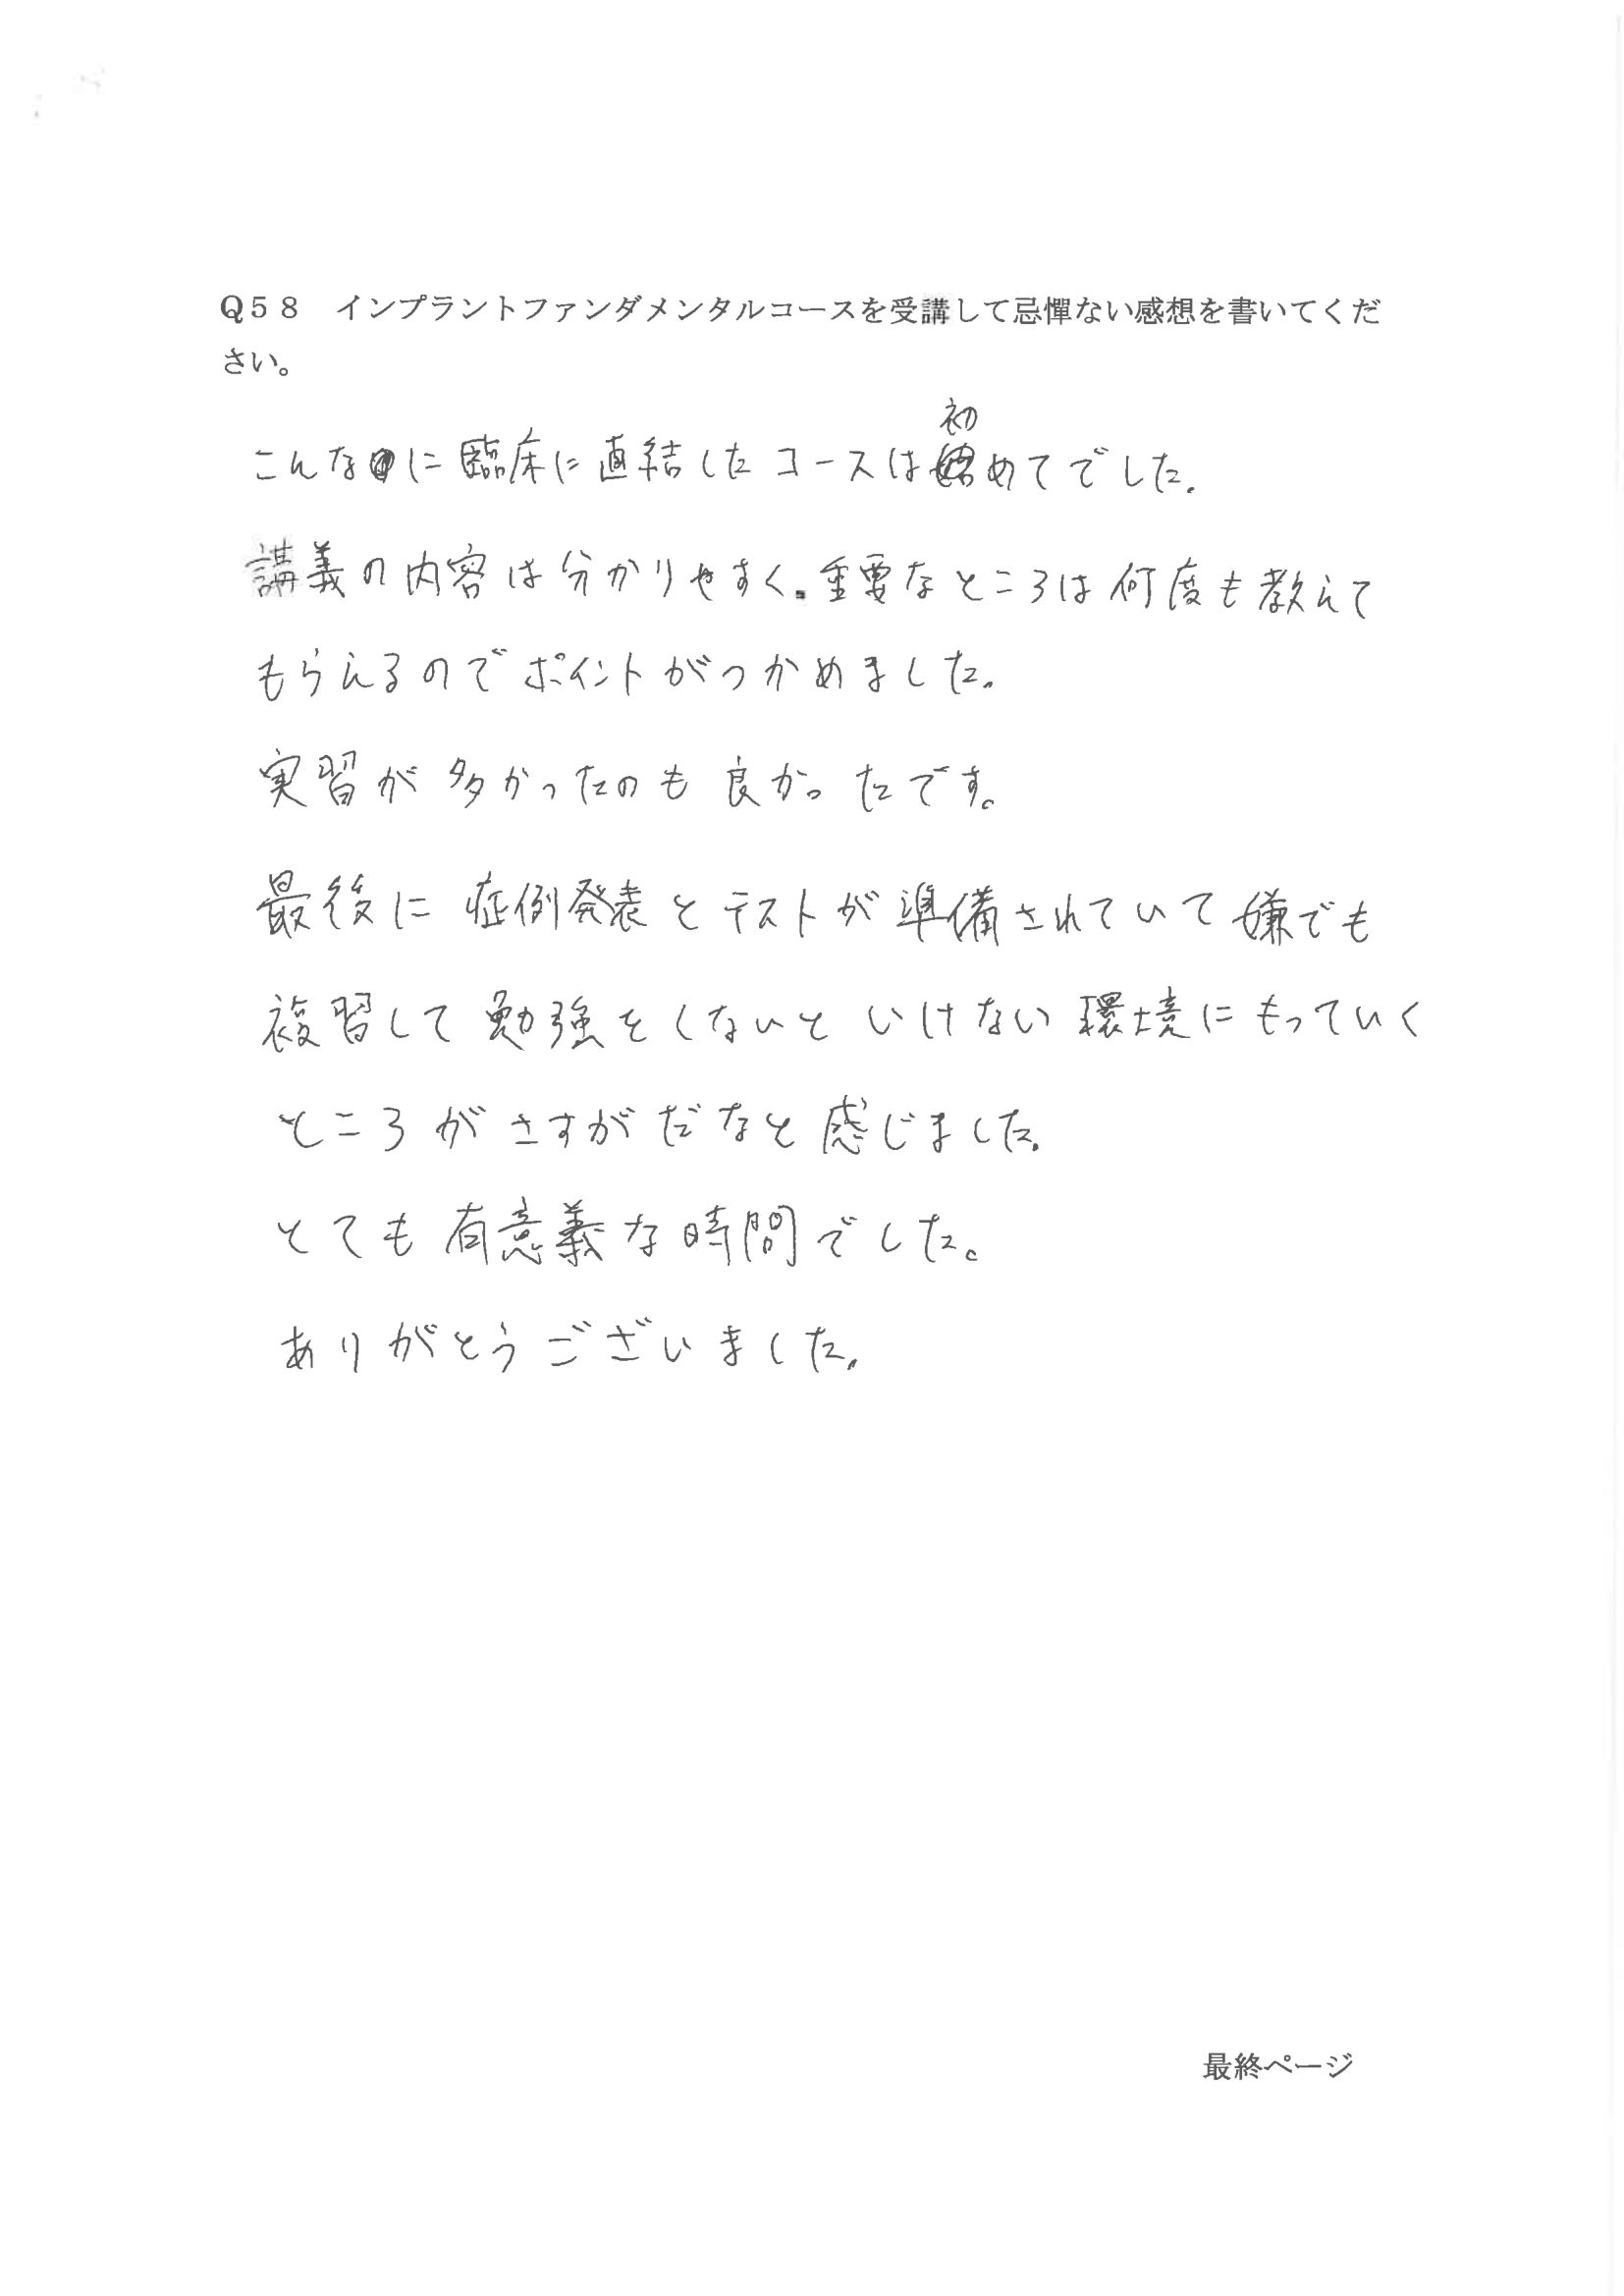 Q58　インプラントファンダメンタルコースを受講して忌憚ない感想を書いてくだ
さい。
こんなに臨床に直結したコースは初めてでした。
講義の内容は分かりやすく、重要なところは何度も教えて
もらえるのでポイントがつかめました。
実習が多かったのも良かったです。
最後に症例発表とテストが準備されていて嫌でも
複習して勉強をしないといけない環境にもっていく
ところがさすがだなと感じました。
とても有意義な時間でした。
ありがとうございました。
最終ページ